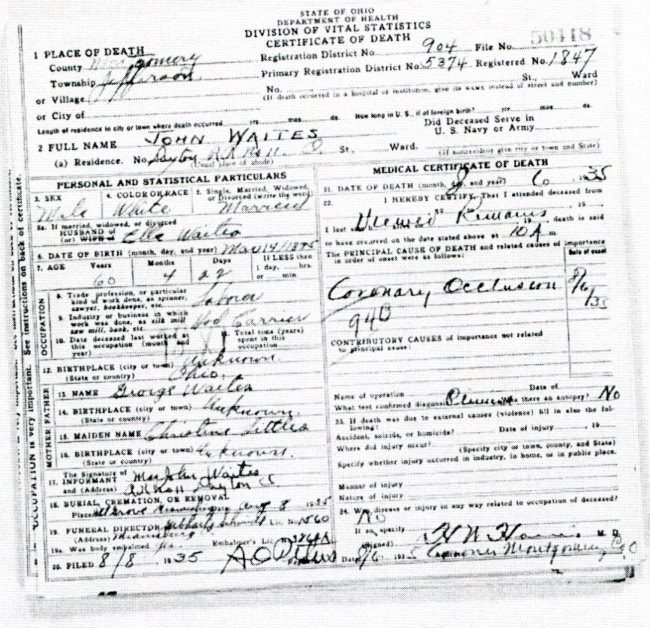 STATE OF OHIO
DEPARTMENT OF HEALTH
DIVISION OF VITAL STATISTICS
CERTIFICATE OF DEATH
1 PLACE OF DEATH
County Montgomery Registration District No. 904 File No. 50418
Township Jefferson Primary Registration District No. 5374 Registered No. 1847
or Village No. St., Ward
(If death occurred in a hospital or institution, give its name instead of street and number)
or City of
Length of residence in city or town where death occurred yrs. mos. ds. How long in U. S., if of foreign birth? yrs. mos. ds.
2 FULL NAME JOHN WAITES Did Deceased Serve in U. S. Navy or Army
(a) Residence. No. Dayton R.R. No 11. O. St., Ward.
(Usual place of abode) (If nonresident give city or town and State)
PERSONAL AND STATISTICAL PARTICULARS
3. SEX 4. COLOR OR RACE 5. Single, Married, Widowed, or Divorced (write the word)
Male White Married
5a. If married, widowed, or divorced
HUSBAND of
(or) WIFE of Ella Waites
6. DATE OF BIRTH (month, day, and year) Mar 14 1875
7. AGE Years Months Days If LESS than
1 day, hrs.
60 4 22 or min.
OCCUPATION
8. Trade, profession, or particular kind of work done, as spinner, sawyer, bookkeeper, etc. Labora
9. Industry or business in which work was done, as silk mill, saw mill, bank, etc. Hod Carrier
10. Date deceased last worked at this occupation (month and year) 11. Total time (years) spent in this occupation
12. BIRTHPLACE (city or town) Unknown
(State or country) Ohio.
FATHER
13. NAME George Waites
14. BIRTHPLACE (city or town) Unknown
(State or country)
MOTHER
15. MAIDEN NAME Christine Settles
16. BIRTHPLACE (city or town) Unknown.
(State or country)
17. The Signature of INFORMANT Mrs John Waites
and (Address) R.R. No 11 Dayton O
18. BURIAL, CREMATION, OR REMOVAL
Place Date Aug 8 1935
19. FUNERAL DIRECTOR Lic. No. 1560
(Address)
19a. Was body embalmed yes Embalmer's Lic. No.
20. FILED 8/8 1935
MEDICAL CERTIFICATE OF DEATH
21. DATE OF DEATH (month, day, and year) 8 6 1935
22. I HEREBY CERTIFY, That I attended deceased from
, 19
Viewed Remains
I last saw alive on , 19 , death is said
to have occurred on the date stated above at 10 A. m.
The PRINCIPAL CAUSE OF DEATH and related causes of importance in order of onset were as follows:
Date of onset
Coronary Occlusion 8/6/35
940
CONTRIBUTORY CAUSES of importance not related to principal cause:
Name of operation Date of
What test confirmed diagnosis? Was there an autopsy? No
23. If death was due to external causes (violence) fill in also the following:
Accident, suicide, or homicide? Date of injury , 19
Where did injury occur?
(Specify city or town, county, and State)
Specify whether injury occurred in industry, in home, or in public place
Manner of injury
Nature of injury
24. Was disease or injury in any way related to occupation of deceased?
No
If so, specify
(Signed) M. D.
Date 8/6 1935 Coroner Montgomery Co O
OCCUPATION is very important. See instructions on back of certificate.